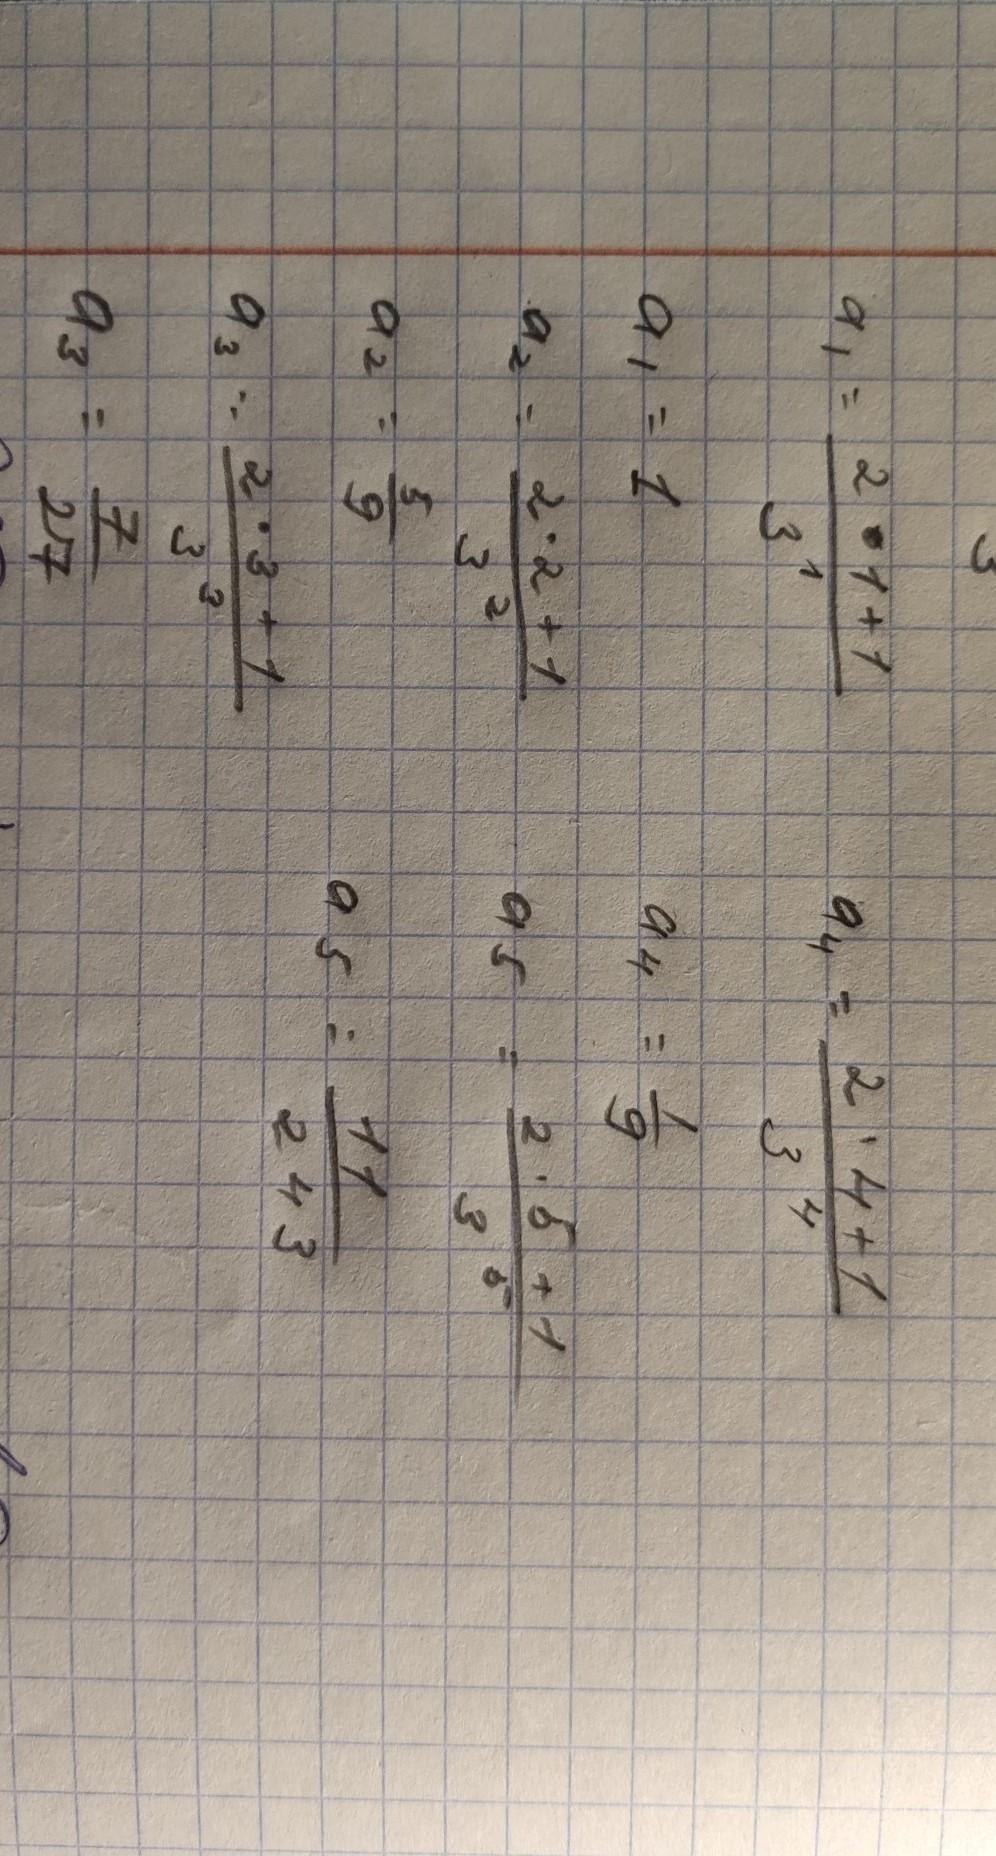 3
a₁ = (2·1+1)/3¹
a₁ = 1
a₂ = (2·2+1)/3²
a₂ = 5/9
a₃ = (2·3+1)/3³
a₃ = 7/27
a₄ = (2·4+1)/3⁴
a₄ = 1/9
a₅ = (2·5+1)/3⁵
a₅ = 11/243